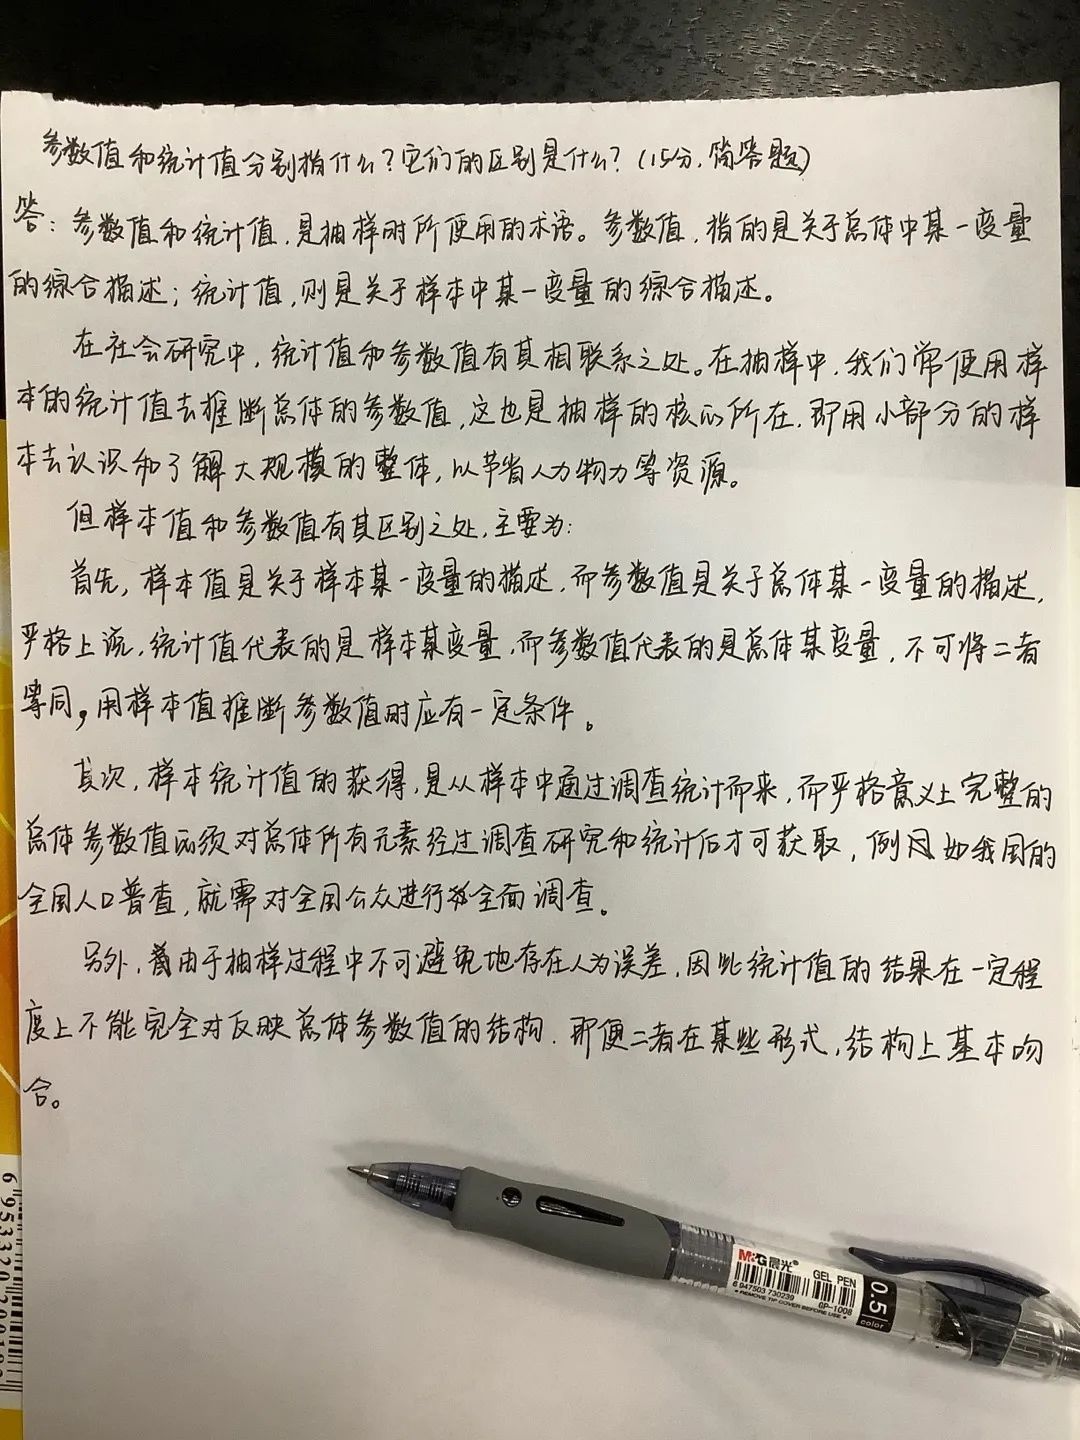 参数值和统计值分别指什么?它们的区别是什么?(15分,简答题)
答:参数值和统计值,是抽样时所使用的术语。参数值,指的是关于总体中某一变量
的综合描述;统计值,则是关于样本中某一变量的综合描述。
在社会研究中,统计值和参数值有其相联系之处。在抽样中,我们常使用样
本的统计值去推断总体的参数值,这也是抽样的核心所在,即用小部分的样
本去认识和了解大规模的整体,以节省人力物力等资源。
但样本值和参数值有其区别之处,主要为:
首先,样本值是关于样本某一变量的描述,而参数值是关于总体某一变量的描述,
严格上说,统计值代表的是样本某变量,而参数值代表的是总体某变量,不可将二者
等同,用样本值推断参数值时应有一定条件。
其次,样本统计值的获得,是从样本中通过调查统计而来,而严格意义上完整的
总体参数值必须对总体所有元素经过调查研究和统计后才可获取,例如我国的
全国人口普查,就需对全国公众进行全面调查。
另外,由于抽样过程中不可避免地存在人为误差,因此统计值的结果在一定程
度上不能完全对反映总体参数值的结构,即便二者在某些形式,结构上基本吻
合。
M&G晨光®
GEL PEN
0.5
color
6 947503 730239
GP-1008
• REMOVE TIP COVER BEFORE USE •